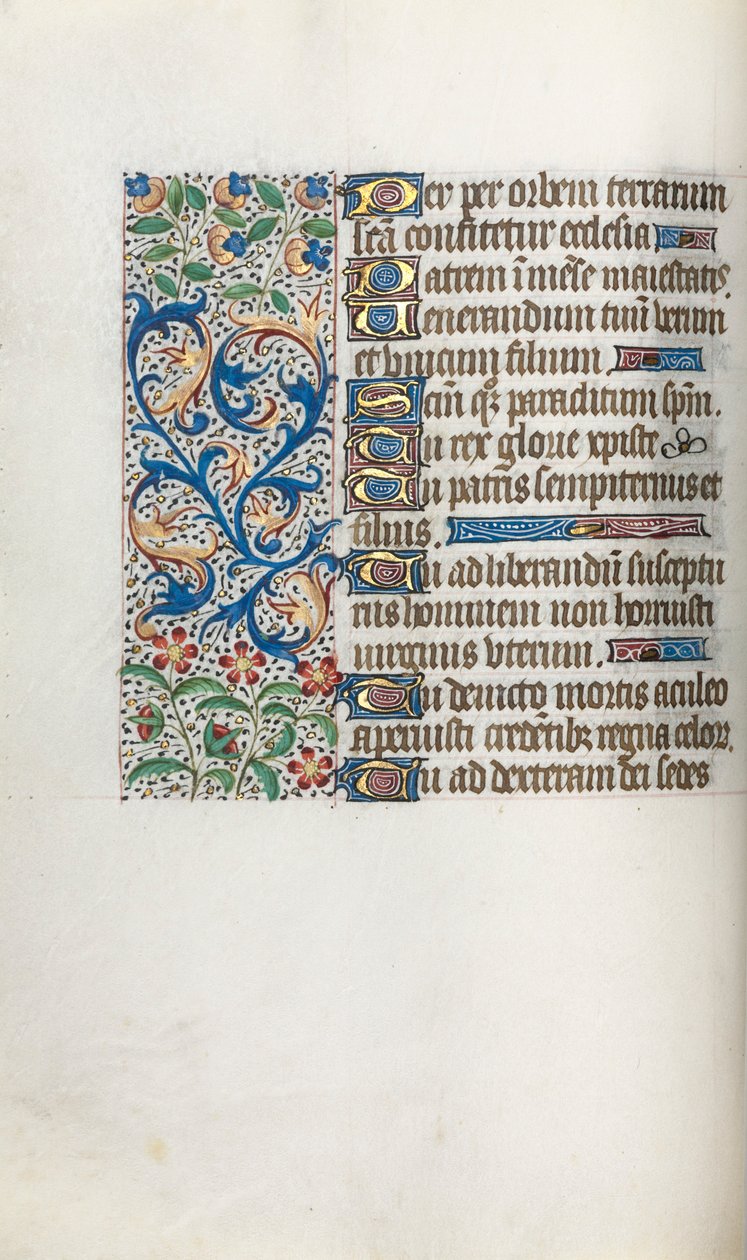 Per per orbem terrarum
scā confitetur ecclesia
Patrem īmēse maiestatis.
Uenerandum tuū verum
et vnicum filium
Sctm̄ qȝ paraditum spm̄.
Tu rex glorie xpiste
Tu patris sempiternus et
filius.
Tu ad liberandū susceptu
rus hominem non horruisti
uirginis vterum.
Tu deuicto mortis aculeo
aperuisti credētibȝ regna celoꝝ.
Tu ad dexteram dei sedes